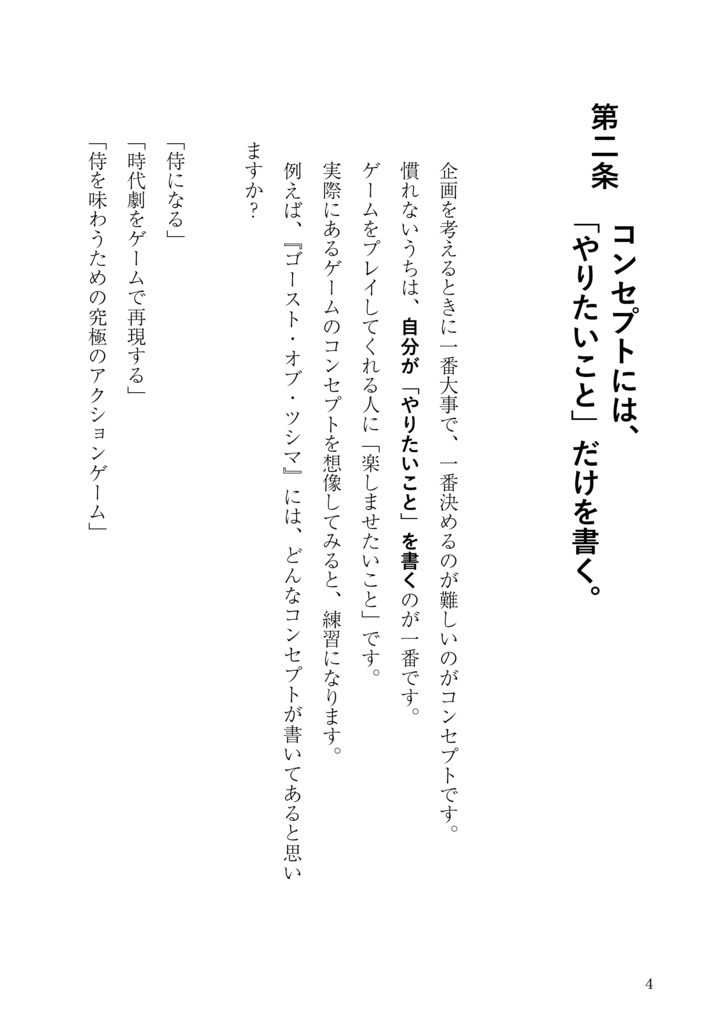 第二条
コンセプトには、
「やりたいこと」だけを書く。
企画を考えるときに一番大事で、一番決めるのが難しいのがコンセプトです。
慣れないうちは、自分が「やりたいこと」を書くのが一番です。
ゲームをプレイしてくれる人に「楽しませたいこと」です。
実際にあるゲームのコンセプトを想像してみると、練習になります。
例えば、『ゴースト・オブ・ツシマ』には、どんなコンセプトが書いてあると思い
ますか？
「侍になる」
「時代劇をゲームで再現する」
「侍を味わうための究極のアクションゲーム」
4